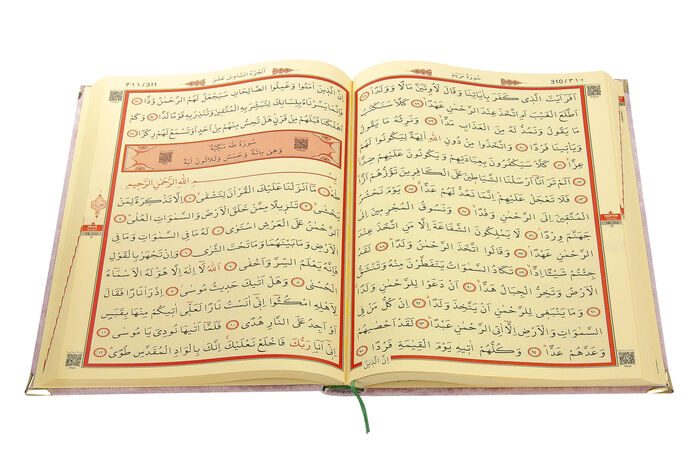 سُورَةُ مَرْيَمَ
310/٣١٠
اَفَرَاَيْتَ الَّذِي كَفَرَ بِاٰيَاتِنَا وَقَالَ لَاُوتَيَنَّ مَالًا وَوَلَدًا ﴿٧٧﴾
اَطَّلَعَ الْغَيْبَ اَمِ اتَّخَذَ عِنْدَ الرَّحْمٰنِ عَهْدًا ﴿٧٨﴾ كَلَّا سَنَكْتُبُ
مَا يَقُولُ وَنَمُدُّ لَهُ مِنَ الْعَذَابِ مَدًّا ﴿٧٩﴾ وَنَرِثُهُ مَا يَقُولُ
وَيَأْتِينَا فَرْدًا ﴿٨٠﴾ وَاتَّخَذُوا مِنْ دُونِ اللّٰهِ اٰلِهَةً لِيَكُونُوا لَهُمْ
عِزًّا ﴿٨١﴾ كَلَّا سَيَكْفُرُونَ بِعِبَادَتِهِمْ وَيَكُونُونَ عَلَيْهِمْ ضِدًّا
﴿٨٢﴾ اَلَمْ تَرَ اَنَّا اَرْسَلْنَا الشَّيَاطِينَ عَلَى الْكَافِرِينَ تَؤُزُّهُمْ اَزًّا
﴿٨٣﴾ فَلَا تَعْجَلْ عَلَيْهِمْ اِنَّمَا نَعُدُّ لَهُمْ عَدًّا ﴿٨٤﴾ يَوْمَ نَحْشُرُ
الْمُتَّقِينَ اِلَى الرَّحْمٰنِ وَفْدًا ﴿٨٥﴾ وَنَسُوقُ الْمُجْرِمِينَ اِلٰى
جَهَنَّمَ وِرْدًا ﴿٨٦﴾ لَا يَمْلِكُونَ الشَّفَاعَةَ اِلَّا مَنِ اتَّخَذَ عِنْدَ
الرَّحْمٰنِ عَهْدًا ﴿٨٧﴾ وَقَالُوا اتَّخَذَ الرَّحْمٰنُ وَلَدًا ﴿٨٨﴾ لَقَدْ
جِئْتُمْ شَيْئًا اِدًّا ﴿٨٩﴾ تَكَادُ السَّمٰوَاتُ يَتَفَطَّرْنَ مِنْهُ وَتَنْشَقُّ
الْاَرْضُ وَتَخِرُّ الْجِبَالُ هَدًّا ﴿٩٠﴾ اَنْ دَعَوْا لِلرَّحْمٰنِ وَلَدًا
﴿٩١﴾ وَمَا يَنْبَغِي لِلرَّحْمٰنِ اَنْ يَتَّخِذَ وَلَدًا ﴿٩٢﴾ اِنْ كُلُّ مَنْ فِي
السَّمٰوَاتِ وَالْاَرْضِ اِلَّا اٰتِي الرَّحْمٰنِ عَبْدًا ﴿٩٣﴾ لَقَدْ اَحْصٰيهُمْ
وَعَدَّهُمْ عَدًّا ﴿٩٤﴾ وَكُلُّهُمْ اٰتِيهِ يَوْمَ الْقِيٰمَةِ فَرْدًا ﴿٩٥﴾
اِنَّ الَّذِينَ
اَلْجُزْءُ السَّادِسَ عَشَرَ
٣١١/311
اِنَّ الَّذِينَ اٰمَنُوا وَعَمِلُوا الصَّالِحَاتِ سَيَجْعَلُ لَهُمُ الرَّحْمٰنُ وُدًّا ﴿٩٦﴾
فَاِنَّمَا يَسَّرْنَاهُ بِلِسَانِكَ لِتُبَشِّرَ بِهِ الْمُتَّقِينَ وَتُنْذِرَ بِهِ قَوْمًا لُدًّا ﴿٩٧﴾ وَكَمْ
اَهْلَكْنَا قَبْلَهُمْ مِنْ قَرْنٍ هَلْ تُحِسُّ مِنْهُمْ مِنْ اَحَدٍ اَوْ تَسْمَعُ لَهُمْ رِكْزًا ﴿٩٨﴾
سُورَةُ طٰهٰ مَكِّيَّةٌ
وَهِيَ مِائَةٌ وَخَمْسٌ وَثَلَاثُونَ اٰيَةً
بِسْمِ اللّٰهِ الرَّحْمٰنِ الرَّحِيمِ
طٰهٰ ﴿١﴾ مَا اَنْزَلْنَا عَلَيْكَ الْقُرْاٰنَ لِتَشْقٰى ﴿٢﴾ اِلَّا تَذْكِرَةً لِمَنْ
يَخْشٰى ﴿٣﴾ تَنْزِيلًا مِمَّنْ خَلَقَ الْاَرْضَ وَالسَّمٰوَاتِ الْعُلٰى ﴿٤﴾
اَلرَّحْمٰنُ عَلَى الْعَرْشِ اسْتَوٰى ﴿٥﴾ لَهُ مَا فِي السَّمٰوَاتِ وَمَا فِي
الْاَرْضِ وَمَا بَيْنَهُمَا وَمَا تَحْتَ الثَّرٰى ﴿٦﴾ وَاِنْ تَجْهَرْ بِالْقَوْلِ
فَاِنَّهُ يَعْلَمُ السِّرَّ وَاَخْفٰى ﴿٧﴾ اَللّٰهُ لَا اِلٰهَ اِلَّا هُوَ لَهُ الْاَسْمَاءُ
الْحُسْنٰى ﴿٨﴾ وَهَلْ اَتٰيكَ حَدِيثُ مُوسٰى ﴿٩﴾ اِذْ رَاٰ نَارًا فَقَالَ
لِاَهْلِهِ امْكُثُوا اِنِّي اٰنَسْتُ نَارًا لَعَلِّي اٰتِيكُمْ مِنْهَا بِقَبَسٍ
اَوْ اَجِدُ عَلَى النَّارِ هُدًى ﴿١٠﴾ فَلَمَّا اَتٰيهَا نُودِيَ يَا مُوسٰى ﴿١١﴾
اِنِّي اَنَا رَبُّكَ فَاخْلَعْ نَعْلَيْكَ اِنَّكَ بِالْوَادِ الْمُقَدَّسِ طُوًى ﴿١٢﴾